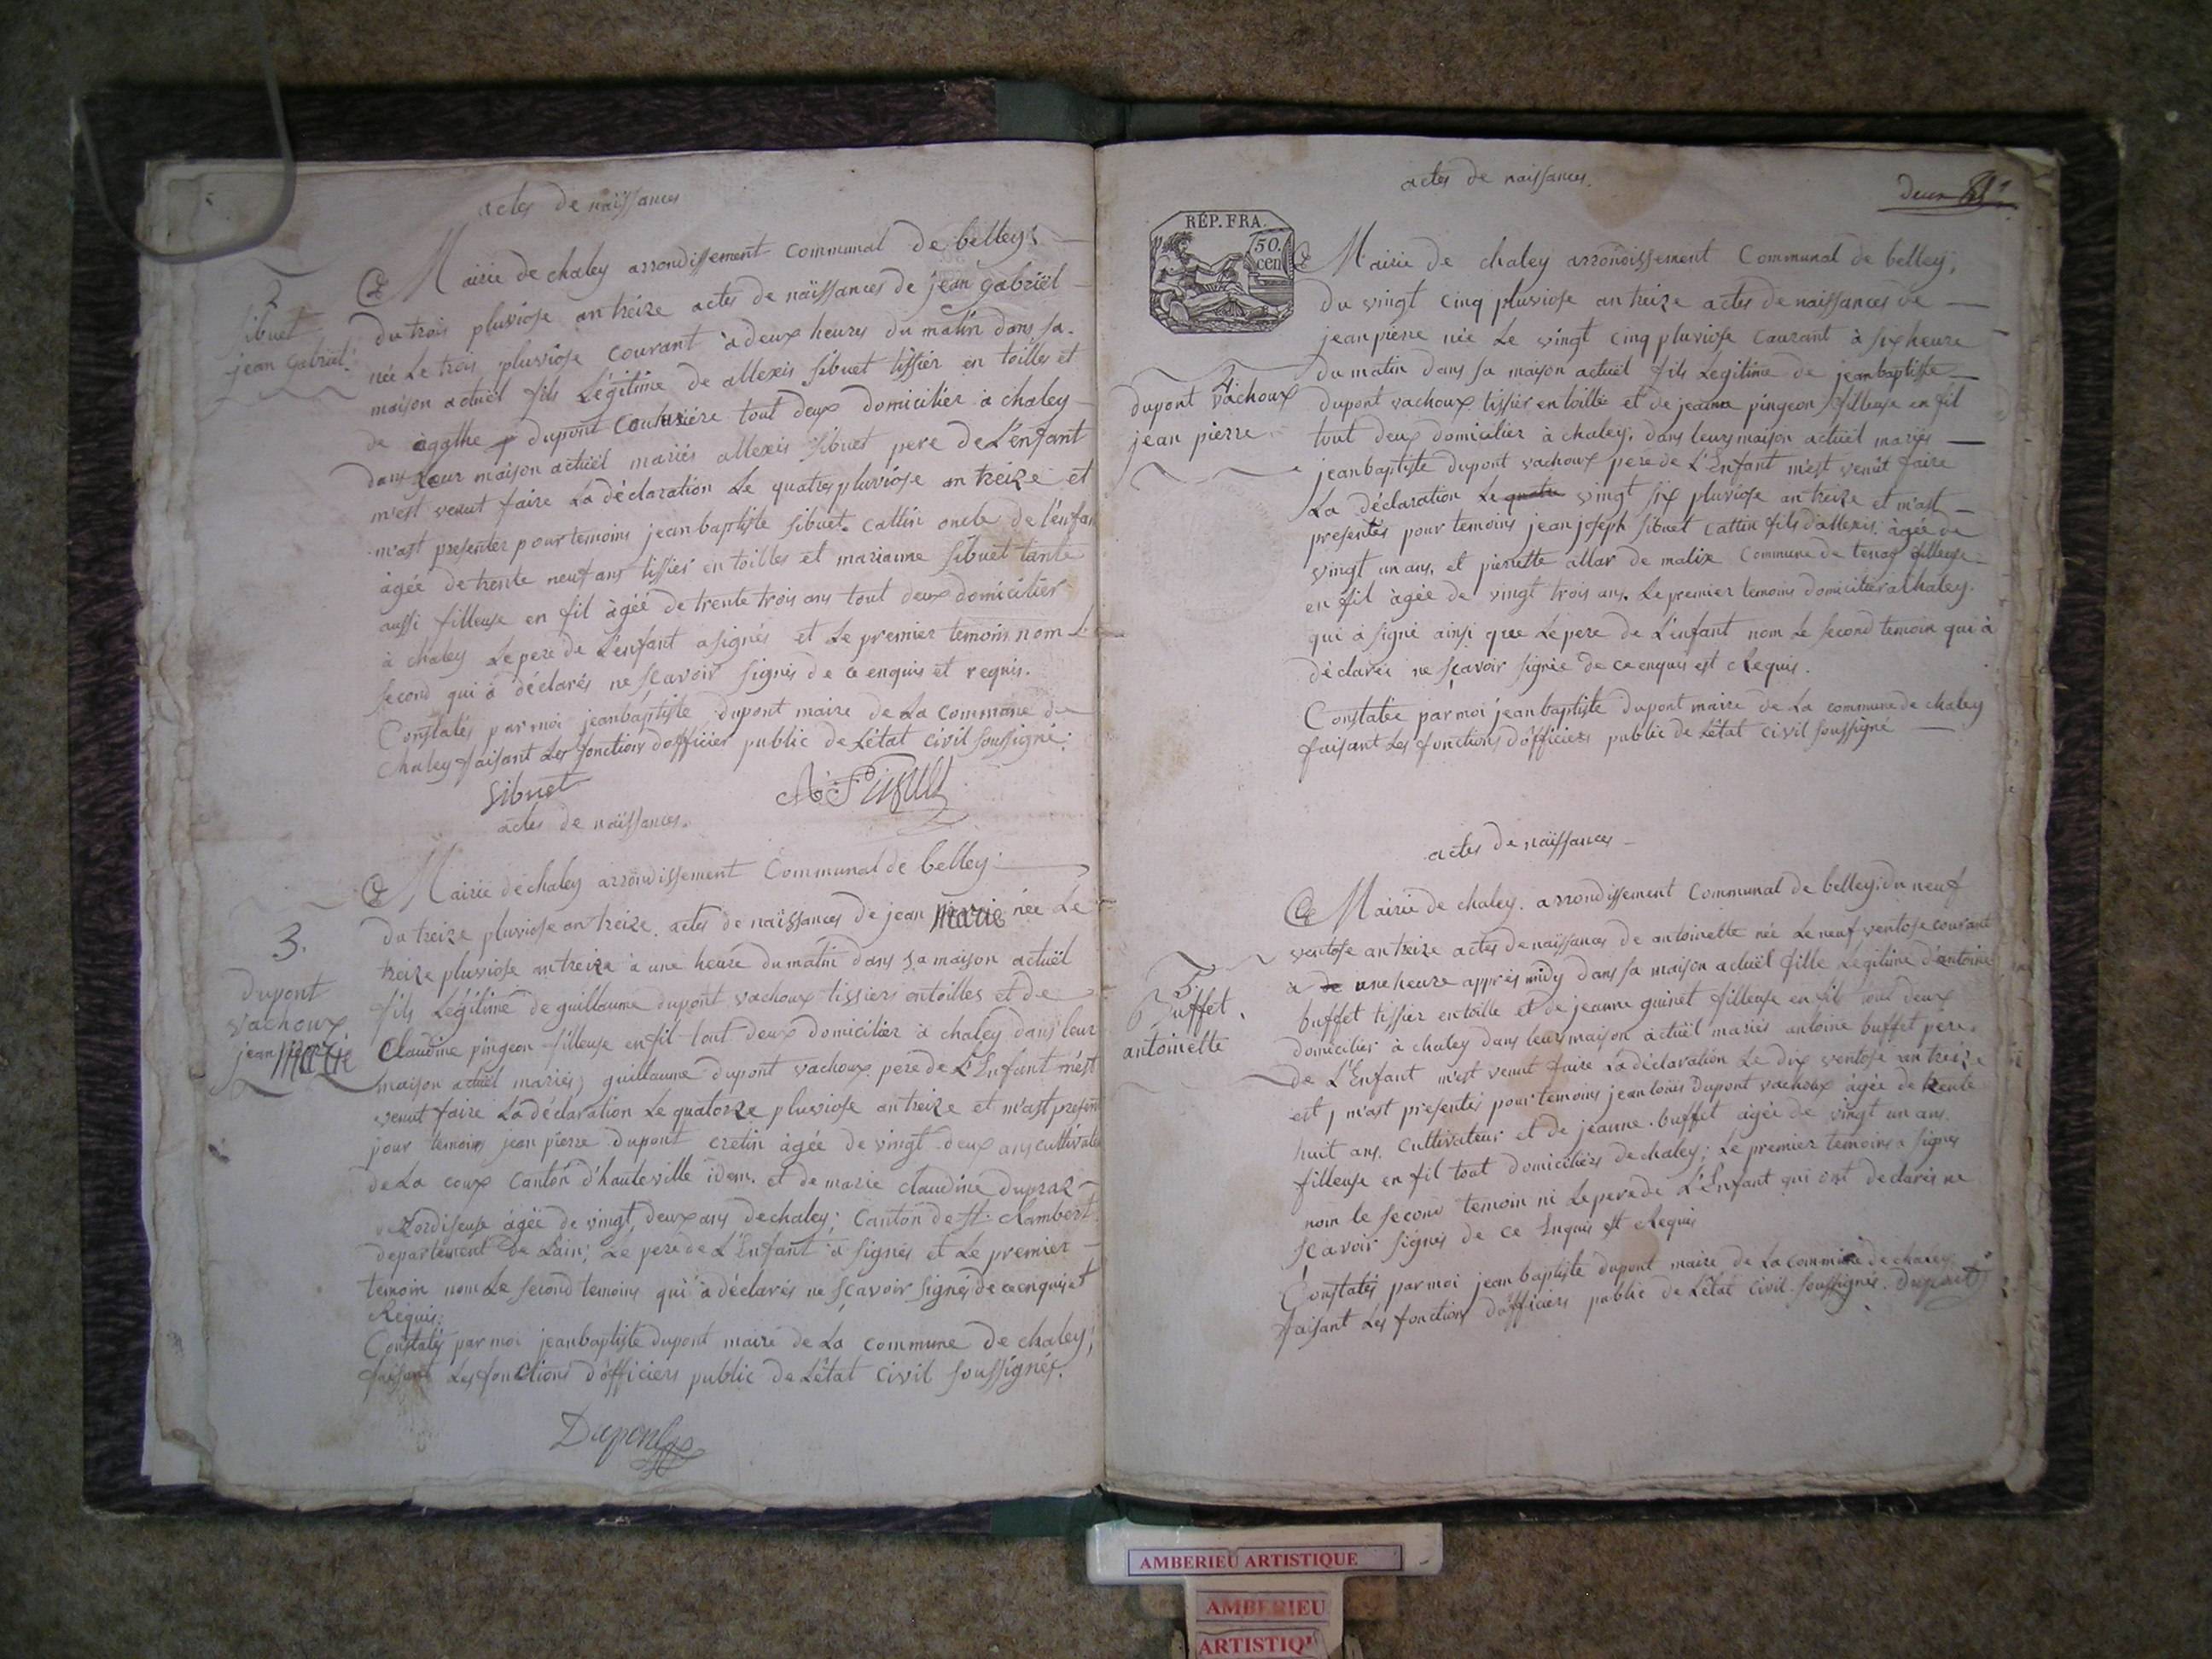 actes de naissances
2
sibuet
jean gabriel
Mairie de chaley arrondissement communal de belley;
du trois pluviose an treize actes de naissances de jean gabriel
née Le trois pluviose courant à deux heures du matin dans sa
maison actuël fils Légitime de allexis sibuet tissier en toilles et
de agathe dupont couturiére tout deux domicilier à chaley
dans leur maison actuël mariés allexis sibuet pere de L'enfant
m'est venut faire La déclaration Le quatre pluviose an treize et
m'ast presenter pour temoins jean baptiste sibuet cattin oncle de l'enfan
àgée de trente neuf ans tissier en toilles et marianne sibuet tante
aussi filleuse en fil àgée de trente trois ans tout deux domicilier
à chaley Le pere de L'enfant a signés et Le premier temoin nom Le
second qui à déclarés ne sçavoir signés de ce enquis et requis.
Constatés par moi jean baptiste dupont maire de La commune de
chaley faisant Les fonctions d'officier public de L'état civil soussigné;
Sibuet
actes de naissances.
3.
Dupont
vachoux
jean marie
Mairie de chaley arrondissement Communal de belley;
du treize pluviose an treize actes de naissances de jean marie née Le
treize pluviose an treize à une heure du matin dans sa maison actuël
fils Légitime de guillaume dupont vachoux tissiers en toilles et de
Claudine pingeon filleuse en fil tout deux domicilier à chaley dans leur
maison actuël mariés; guillaume dupont vachoux pere de L'Enfant m'est
venut faire La déclaration Le quatorze pluviose an treize et m'ast presenté
pour temoins jean pierre dupont cretin àgée de vingt deux ans cultivate
de La coux Canton d'hauteville idem. et de marie claudine
àgée de vingt deux ans de chaley; Canton de st. Rambert
departement de L'ain; Le pere de L'Enfant à signés et Le premier
temoin nom Le second temoins qui à déclarés ne sçavoir signés de ce enquis et
Réquis.
Constatés par moi jean baptiste dupont maire de La commune de chaley;
faisant Les fonctions d'officiers public de L'état civil soussignés.
Dupont
actes de naissances.
deux
RÉP. FRA.
50.
cen
4
dupont vachoux
jean pierre
Mairie de chaley arrondissement Communal de belley;
du vingt cinq pluviose an treize actes de naissances de
jean pierre née Le vingt cinq pluviose courant à six heure
du matin dans sa maison actuël fils Légitime de jean baptiste
dupont vachoux tissier en toille et de jeanne pingeon filleuse en fil
tout deux domicilier à chaley. dans leurs maison actuël mariés
jean baptiste dupont vachoux pere de L'Enfant m'est venut faire
La déclaration Le quatre vingt six pluviose an treize et m'ast
presentés pour temoins jean joseph sibuet cattin fils d'allexis àgée de
vingt un ans, et pierrette allar de malix Commune de tenay filleuse
en fil àgée de vingt trois ans. Le premier temoins domicilier a Chaley.
qui à signé ainsi que Le pere de L'enfant nom Le second temoin qui à
déclarée ne sçavoir signée de ce enquis est Requis.
Constatée par moi jean baptiste dupont maire de La commune de chaley
faisant Les fonctions d'officiers public de L'état civil soussigné
actes de naissances
5
Buffet,
antoinette
Mairie de chaley. arrondissement Communal de belley; du neuf
ventose an treize actes de naissances de antoinette née Le neuf ventose courant
à de une heure apprés midy dans sa maison actuël fille Légitime d'antoine
buffet tissier en toille et de jeanne guinet filleuse en fil tout deux
domicilier à chaley dans leurs maison actuël mariés antoine buffet pere
de L'Enfant m'est venut faire La déclaration Le dix ventose an treize
est, m'ast presentés pour temoins jean louis dupont vachoux àgée de trente
huit ans, cultivateur et de jeanne buffet àgée de vingt un ans.
filleuse en fil tout domiciliers de chaley; Le premier temoins a signés
nom le second temoin ni Le pere de L'Enfant qui ont declarés ne
sçavoir signés de ce Enquis est Requis
Constatés par moi jean baptiste dupont maire de La commune de chaley
faisant Les fonctions d'officiers public de L'état civil soussignés. Dupont
AMBERIEU ARTISTIQUE
AMBERIEU
ARTISTIQU